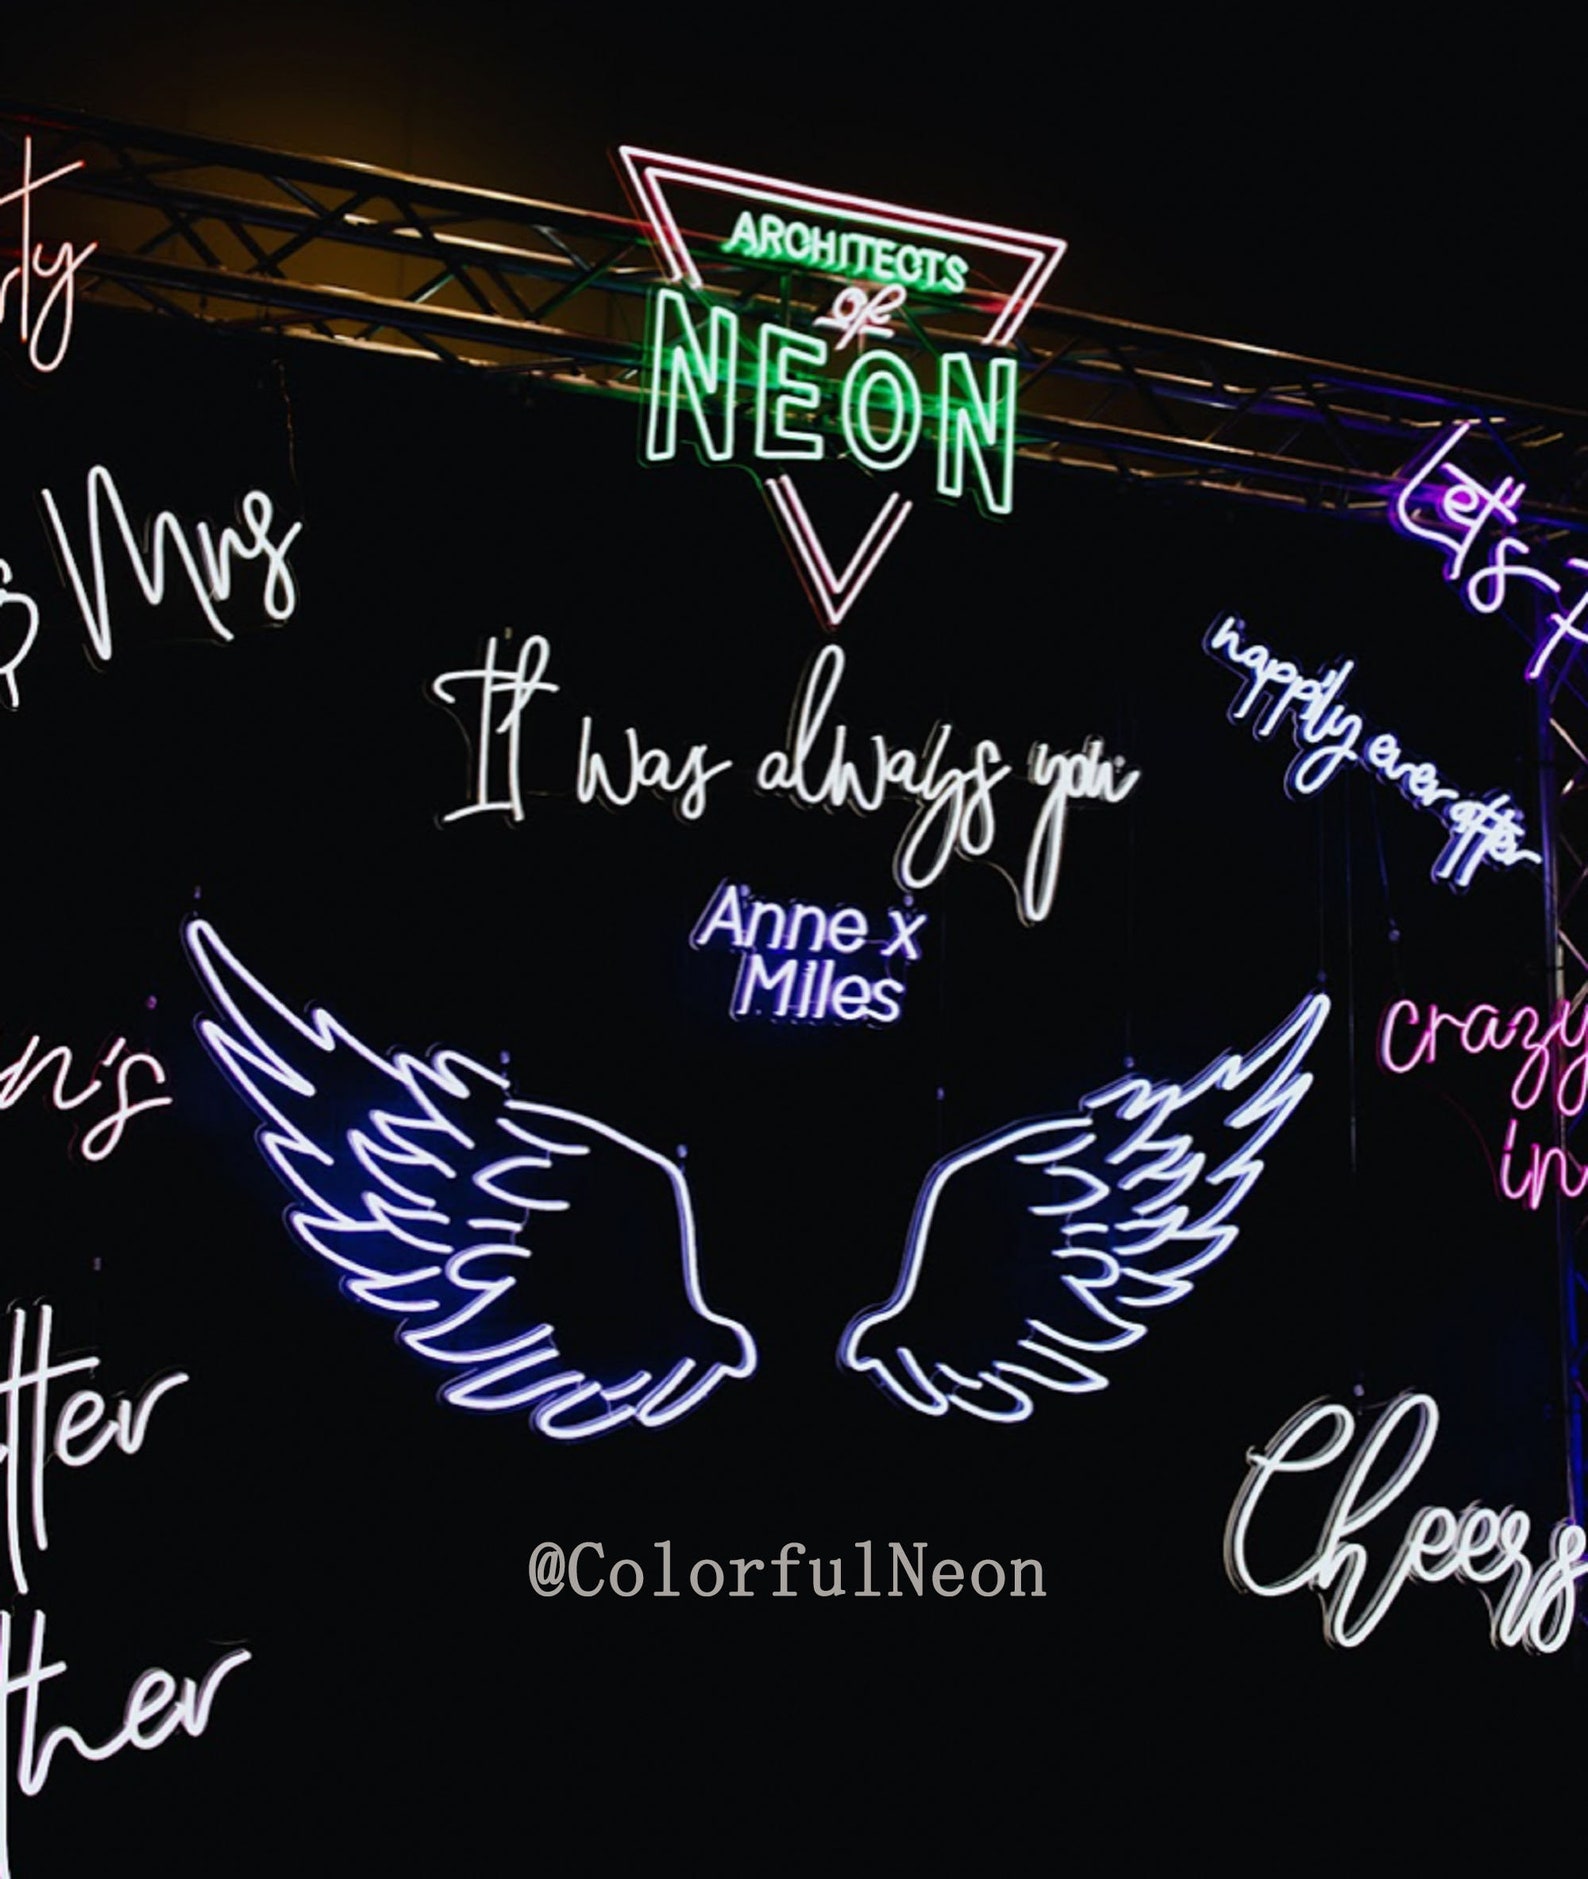 ARCHITECTS
of
NEON
& Mrs
Let's
It was always you
happily ever after
Anne x
Miles
crazy
in
Cheers
@ColorfulNeon